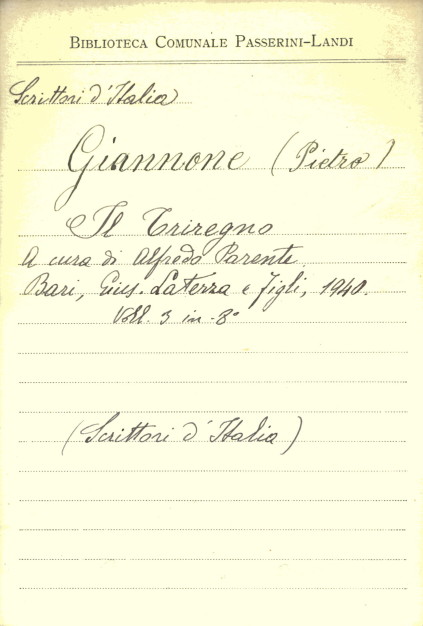 BIBLIOTECA COMUNALE PASSERINI-LANDI
Scrittori d'Italia
Giannone (Pietro)
Il Triregno
A cura di Alfredo Parente
Bari, Gius. Laterza e figli, 1940.
Voll. 3 in-8°
(Scrittori d'Italia)